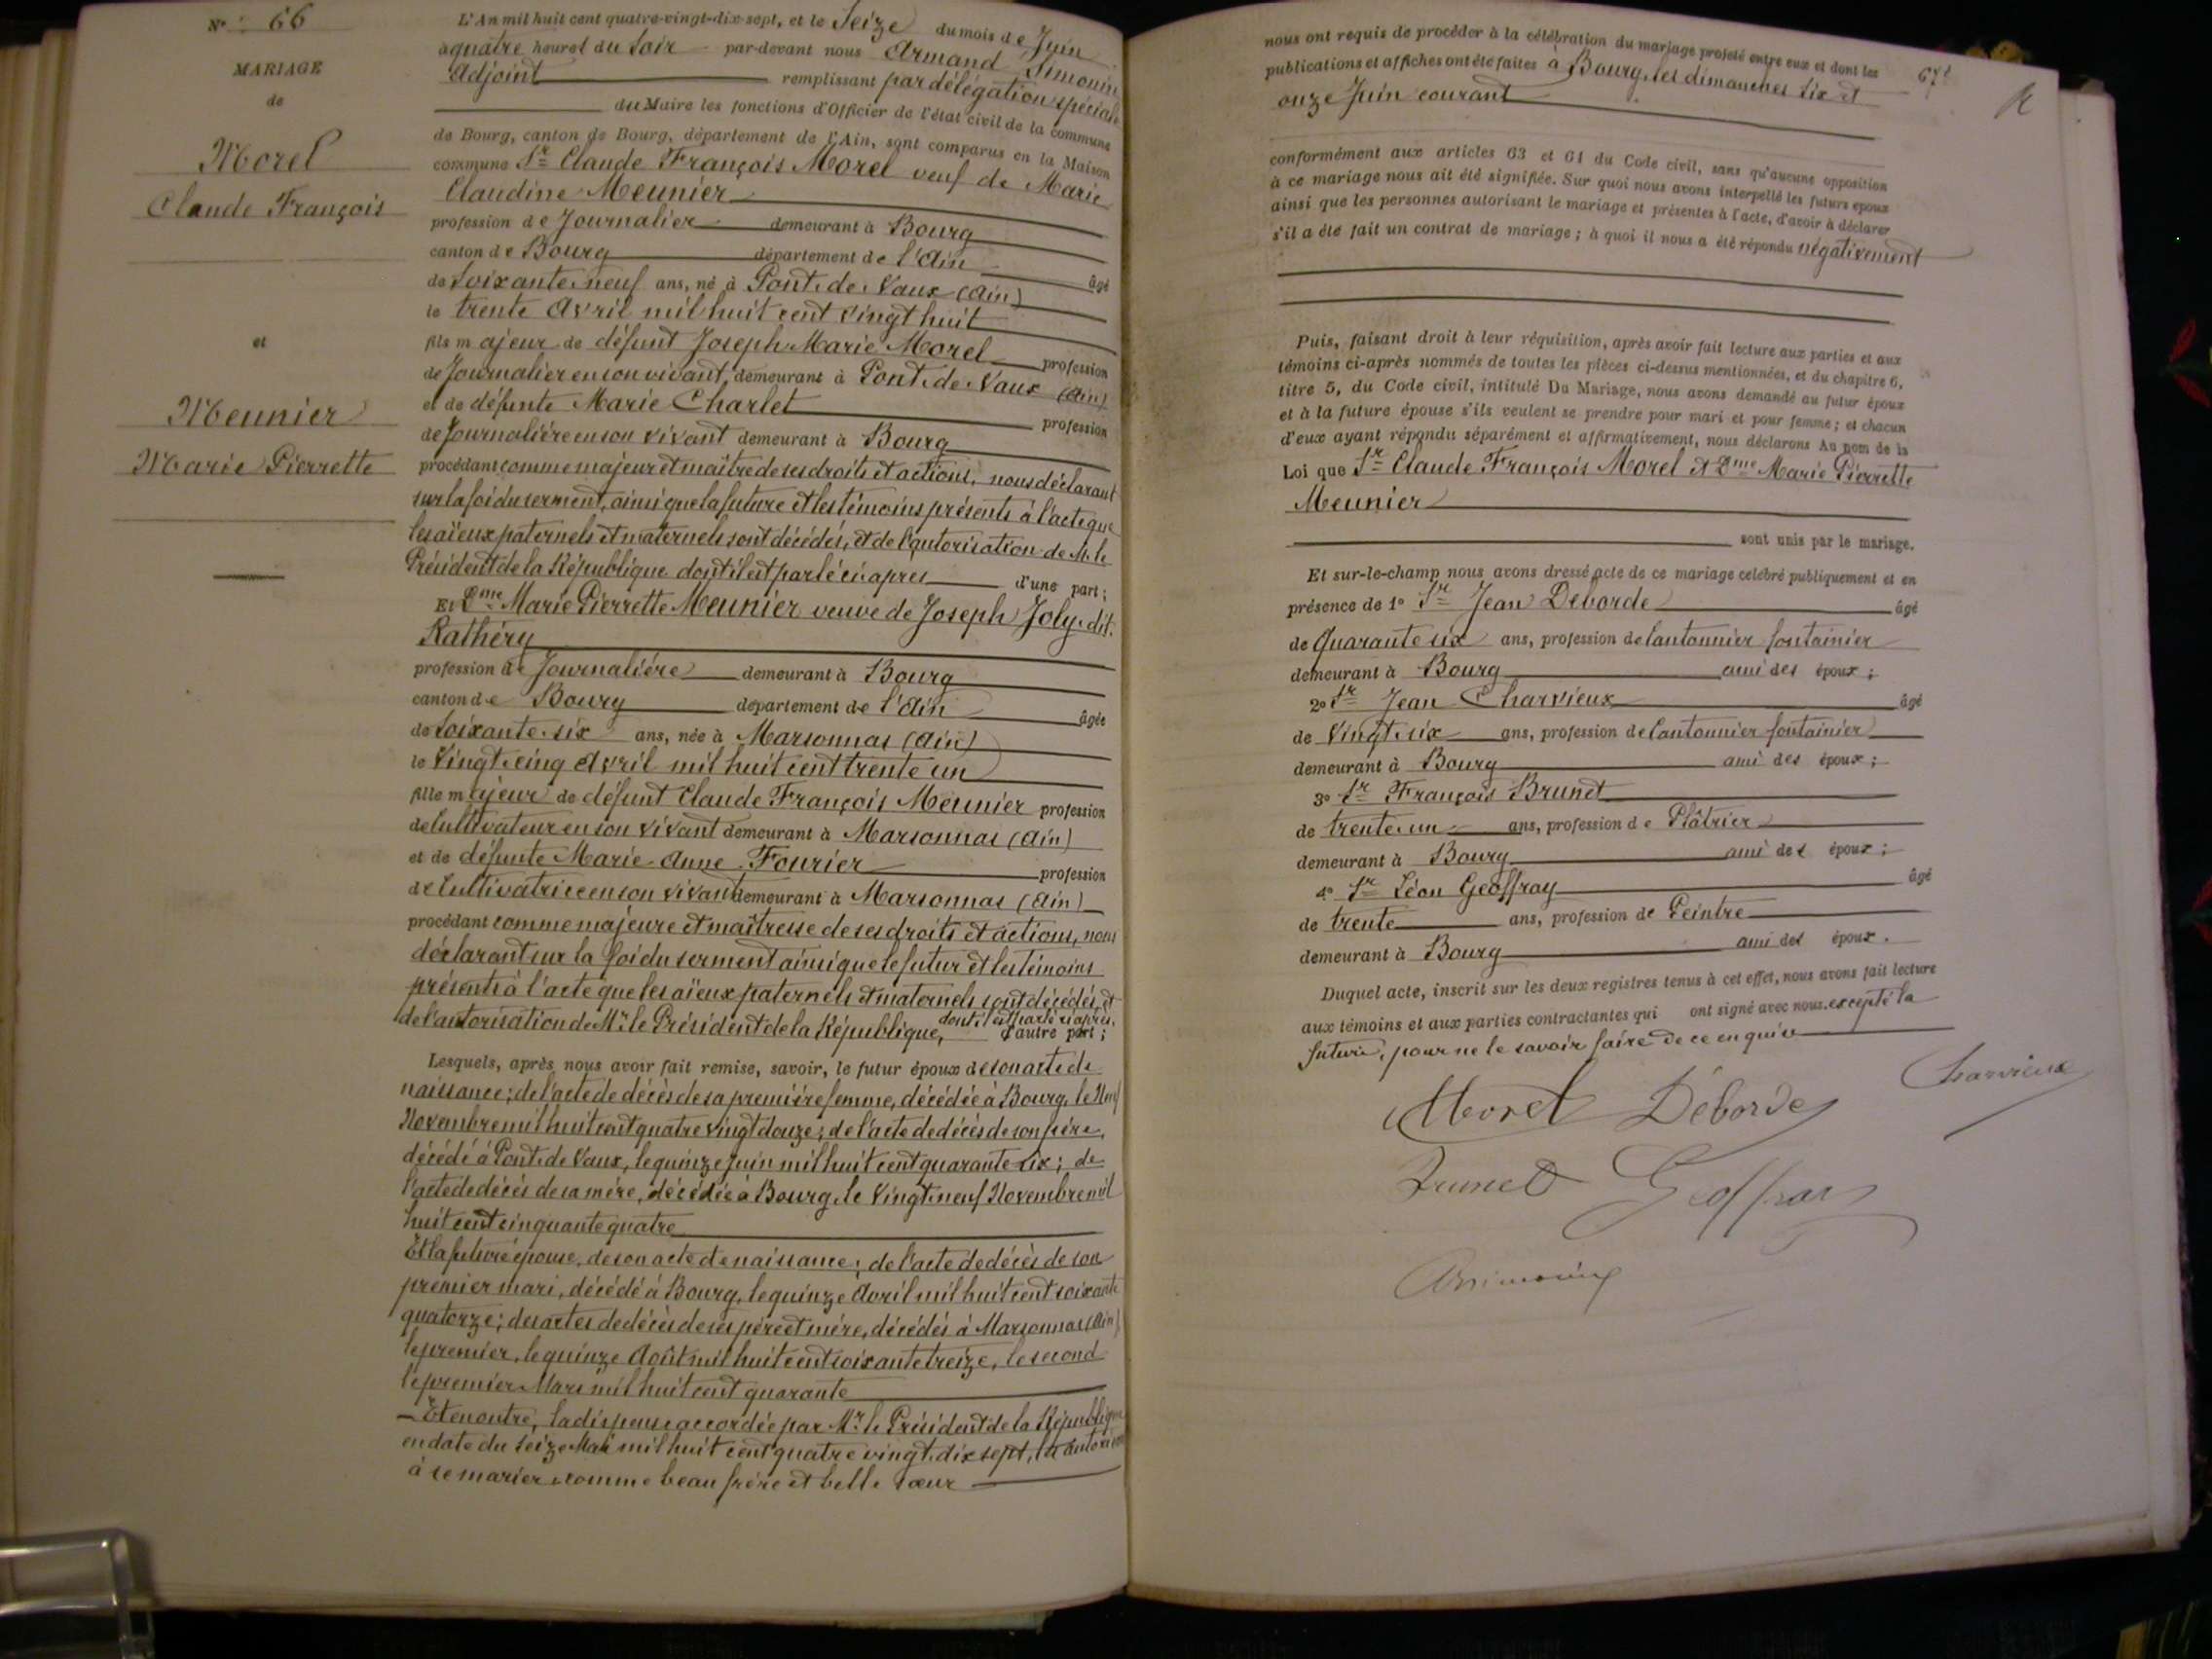 N° 66
MARIAGE
de
Morel
Claude François
et
Meunier
Marie Pierrette
L'An mil huit cent quatre-vingt-dix-sept, et le Seize du mois de Juin
à quatre heures du Soir par-devant nous Armand Simonin
Adjoint remplissant par délégation spéciale
du Maire les fonctions d'Officier de l'état civil de la commune
de Bourg, canton de Bourg, département de l'Ain, sont comparus en la Maison
commune Sr Claude François Morel veuf de Marie
Claudine Meunier
profession de Journalier demeurant à Bourg
canton de Bourg département de l'Ain âgé
de Soixante neuf ans, né à Pont de Vaux (Ain)
le trente Avril mil huit cent vingt huit
fils majeur de défunt Joseph Marie Morel profession
de Journalier en son vivant, demeurant à Pont de Vaux (Ain)
et de défunte Marie Charlet profession
de Journalière en son vivant demeurant à Bourg
procédant comme majeur et maître de ses droits et actions, nous déclarant
sur la foi du serment, ainsi que la future et les témoins présents à l'acte que
ses aïeux paternels et maternels sont décédés, et de l'autorisation de M. le
Président de la République dont il est parlé ci-après d'une part;
Et Dme Marie Pierrette Meunier veuve de Joseph Joly dit.
Rathéry
profession de Journalière demeurant à Bourg
canton de Bourg département de l'Ain âgée
de Soixante six ans, née à Marsonnas (Ain)
le Vingt cinq Avril mil huit cent trente un
fille majeur de défunt Claude François Meunier profession
de Cultivateur en son vivant demeurant à Marsonnas (Ain)
et de défunte Marie Anne Fourier profession
de Cultivatrice en son vivant demeurant à Marsonnas (Ain)
procédant comme majeure et maîtresse de ses droits et actions, nous
déclarant sur la foi du serment ainsi que le futur et les témoins
présents à l'acte que ses aïeux paternels et maternels sont décédés, et
de l'autorisation de Mr le Président de la République, dont il est parlé ci après. d'autre part;
Lesquels, après nous avoir fait remise, savoir, le futur époux de son acte de
naissance; de l'acte de décès de sa première femme, décédée à Bourg, le Neuf
Novembre mil huit cent quatre vingt douze; de l'acte de décès de son père,
décédé à Pont de Vaux, le quinze Juin mil huit cent quarante six; de
l'acte de décès de sa mère, décédée à Bourg, le Vingt neuf Novembre mil
huit cent cinquante quatre
Et la future épouse, de son acte de naissance; de l'acte de décès de son
premier mari, décédé à Bourg, le quinze Avril mil huit cent soixante
quatorze; des actes de décès de ses père et mère, décédés à Marsonnas (Ain)
le premier, le quinze Août mil huit cent soixante treize, le second
le premier Mars mil huit cent quarante
Et en outre, la dispense accordée par Mr le Président de la République
en date du Seize Mai mil huit cent quatre vingt dix sept, les autorisant
à se marier comme beau frère et belle sœur
nous ont requis de procéder à la célébration du mariage projeté entre eux et dont les
publications et affiches ont été faites à Bourg, les dimanches Six et
onze Juin courant
conformément aux articles 63 et 64 du Code civil, sans qu'aucune opposition
à ce mariage nous ait été signifiée. Sur quoi nous avons interpellé les futurs époux
ainsi que les personnes autorisant le mariage et présentes à l'acte, d'avoir à déclarer
s'il a été fait un contrat de mariage; à quoi il nous a été répondu négativement
Puis, faisant droit à leur réquisition, après avoir fait lecture aux parties et aux
témoins ci-après nommés de toutes les pièces ci-dessus mentionnées, et du chapitre 6,
titre 5, du Code civil, intitulé Du Mariage, nous avons demandé au futur époux
et à la future épouse s'ils veulent se prendre pour mari et pour femme; et chacun
d'eux ayant répondu séparément et affirmativement, nous déclarons Au nom de la
Loi que Sr Claude François Morel et Dme Marie Pierrette
Meunier
sont unis par le mariage.
Et sur-le-champ nous avons dressé acte de ce mariage célébré publiquement et en
présence de 1° Sr Jean Deborde âgé
de Quarante six ans, profession de Cantonnier fontainier
demeurant à Bourg ami des époux;
2° Sr Jean Charvieux âgé
de Vingt six ans, profession de Cantonnier fontainier
demeurant à Bourg ami des époux;
3° Sr François Brunet
de trente un ans, profession de Plâtrier
demeurant à Bourg ami des époux;
4° Sr Léon Geoffray âgé
de trente ans, profession de Peintre
demeurant à Bourg ami des époux.
Duquel acte, inscrit sur les deux registres tenus à cet effet, nous avons fait lecture
aux témoins et aux parties contractantes qui ont signé avec nous. excepté la
future, pour ne le savoir faire de ce enquise
Morel Deborde Charvieux
Brunet Geoffray